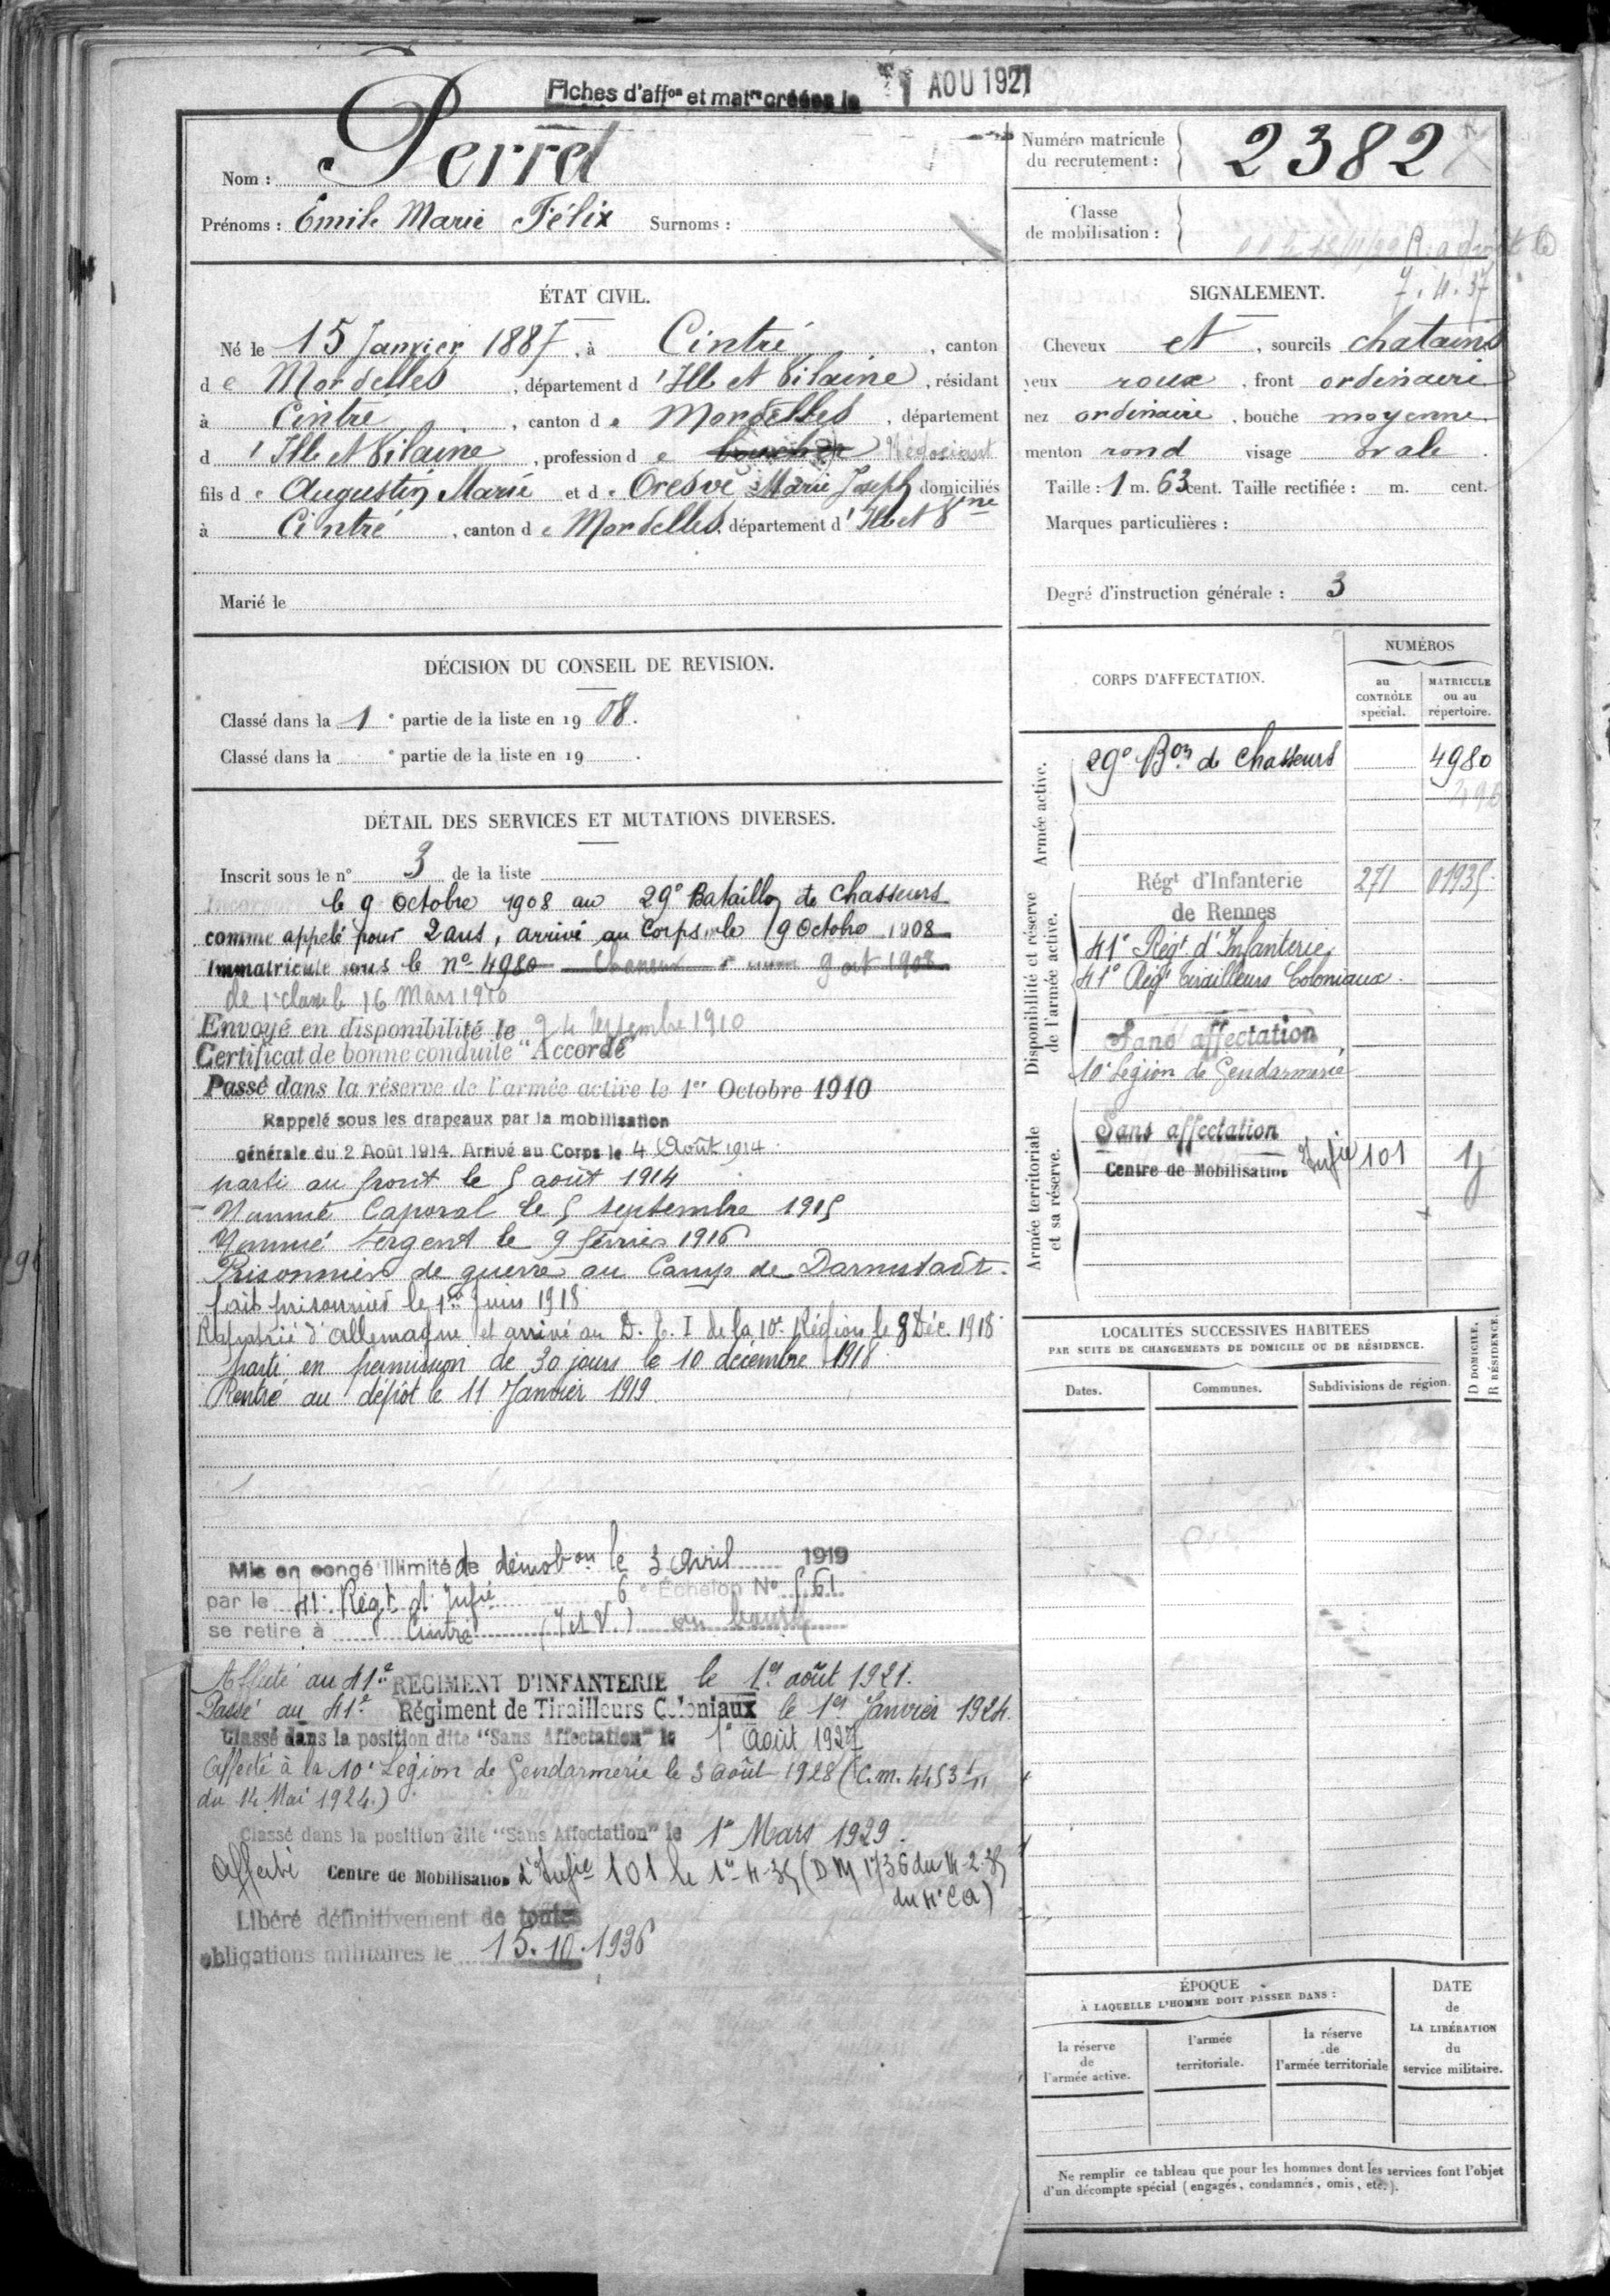 Fiches d'aff^on et mat^re créées le 1 AOU 1927
Nom : Perrel
Prénoms : Emile Marie Félix Surnoms :
Numéro matricule
du recrutement : 2382
Classe
de mobilisation :
7.4.37
ÉTAT CIVIL.
Né le 15 Janvier 1887, à Cintré, canton
de Mordelles, département d'Ille et Vilaine, résidant
à Cintré, canton de Mordelles, département
d'Ille et Vilaine, profession de boucher Négociant
fils de Augustin Marie et de Oresve Marie Joseph domiciliés
à Cintré, canton de Mordelles, département d'Ille et V^ne
Marié le
SIGNALEMENT.
Cheveux et, sourcils chatains
yeux roux, front ordinaire
nez ordinaire, bouche moyenne
menton rond visage ovale.
Taille : 1 m. 63 cent. Taille rectifiée : m. cent.
Marques particulières :
Degré d'instruction générale : 3
DÉCISION DU CONSEIL DE REVISION.
Classé dans la 1e partie de la liste en 1908.
Classé dans la e partie de la liste en 19 .
DÉTAIL DES SERVICES ET MUTATIONS DIVERSES.
Inscrit sous le n° 3 de la liste
Incorporé le 9 Octobre 1908 au 29e Bataillon de Chasseurs
comme appelé pour 2 ans, arrivé au Corps le 9 Octobre 1908
Immatriculé sous le n° 4980 9 oct 1908
de 1e classe le 16 Mars 1910
Envoyé en disponibilité le 24 Septembre 1910
Certificat de bonne conduite "Accordé"
Passé dans la réserve de l'armée active le 1er Octobre 1910
Rappelé sous les drapeaux par la mobilisation
générale du 2 Août 1914. Arrivé au Corps le 4 Août 1914
parti au front le 5 août 1914
Nommé Caporal le 5 septembre 1915
Nommé Sergent le 9 février 1916
Prisonnier de guerre au Camp de Darmstadt.
fait prisonnier le 1er Juin 1918
Rapatrié d'Allemagne et arrivé au D. T. I de la 10e Région le 8 Déc. 1918
parti en permission de 30 jours le 10 décembre 1918
Rentré au dépôt le 11 Janvier 1919
Mis en congé illimité de démob^on le 3 Avril 1919
par le 41e Régt d'Infie 6e Échelon No 561
se retire à Cintré (I et V.) au bourg
Affecté au 41e RÉGIMENT D'INFANTERIE le 1er août 1921.
Passé au 41e Régiment de Tirailleurs Coloniaux le 1er Janvier 1924.
Classé dans la position dite "Sans Affectation" le 1e Août 1927
Affecté à la 10e Légion de Gendarmerie le 3 Août 1928 (C.m. 4453 1/11
du 14 Mai 1924.)
Classé dans la position dite "Sans Affectation" le 1e Mars 1929.
Affecté Centre de Mobilisation d'Infie 101 le 1er-4-35 (DM 1736 du 14-2-35
du 4e CA)
Libéré définitivement de toutes
obligations militaires le 15.10.1936
CORPS D'AFFECTATION.
NUMÉROS
au CONTRÔLE spécial.
MATRICULE ou au répertoire.
Armée active.
29e Bon de Chasseurs 4980
Disponibilité et réserve de l'armée active.
Régt d'Infanterie 271 01935
de Rennes
41e Régt d'Infanterie
41e Régt tirailleurs Coloniaux.
Sans affectation
10e Légion de Gendarmerie
Armée territoriale et sa réserve.
Sans affectation
Centre de Mobilisation Infie 101
LOCALITÉS SUCCESSIVES HABITÉES
PAR SUITE DE CHANGEMENTS DE DOMICILE OU DE RÉSIDENCE.
Dates. Communes. Subdivisions de région. D DOMICILE. R RÉSIDENCE.
ÉPOQUE
À LAQUELLE L'HOMME DOIT PASSER DANS :
la réserve de l'armée active.
l'armée territoriale.
la réserve de l'armée territoriale
DATE de LA LIBÉRATION du service militaire.
Ne remplir ce tableau que pour les hommes dont les services font l'objet
d'un décompte spécial (engagés, condamnés, omis, etc.).